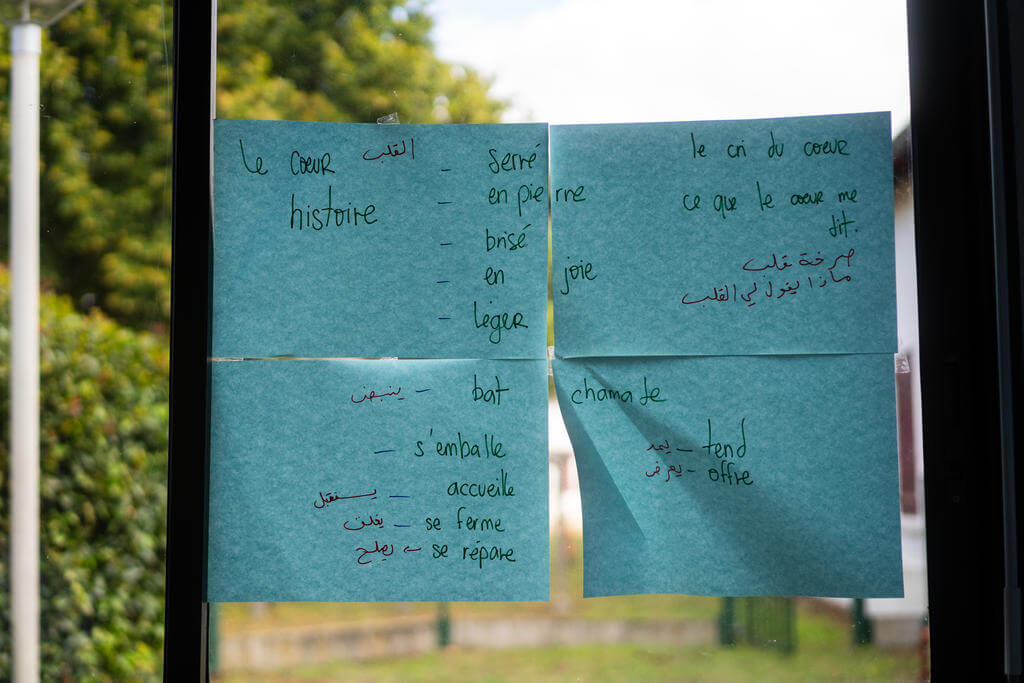 le coeur القلب
histoire
- serré
- en pierre
- brisé
- en joie
- léger
le cri du coeur
ce que le coeur me
dit.
صرخة قلب
ماذا يقول لي القلب
ينبض - bat chamade
- s'emballe
يستقبل - accueille
يغلق - se ferme
يصلح - se répare
يمد - tend
يعرض - offre